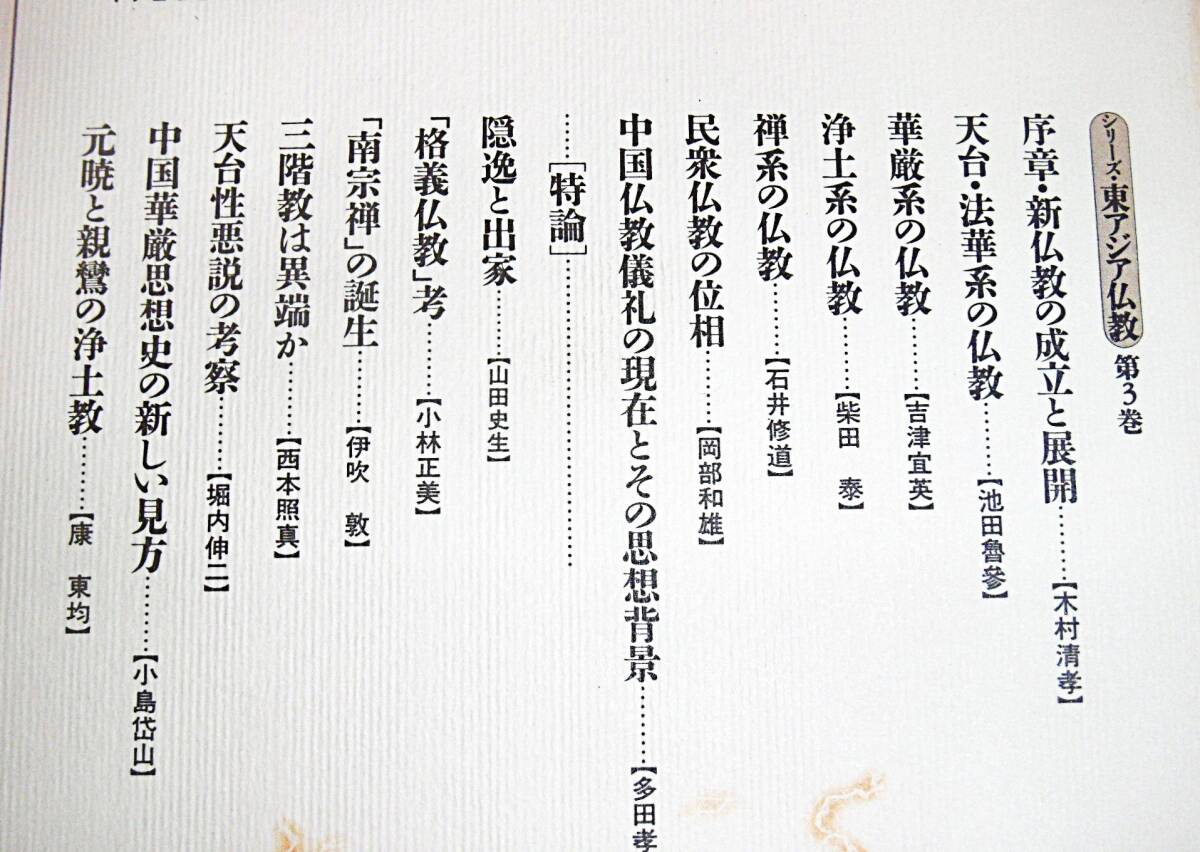 シリーズ・東アジア仏教 第3巻
序章・新仏教の成立と展開…………【木村清孝】
天台・法華系の仏教…………【池田魯參】
華厳系の仏教…………【吉津宜英】
浄土系の仏教…………【柴田 泰】
禅系の仏教…………【石井修道】
民衆仏教の位相…………【岡部和雄】
中国仏教儀礼の現在とその思想背景…………【多田孝
……［特論］……………………………………
隠逸と出家…………【山田史生】
「格義仏教」考…………【小林正美】
「南宗禅」の誕生…………【伊吹 敦】
三階教は異端か…………【西本照真】
天台性悪説の考察…………【堀内伸二】
中国華厳思想史の新しい見方…………【小島岱山】
元暁と親鸞の浄土教…………【康 東均】